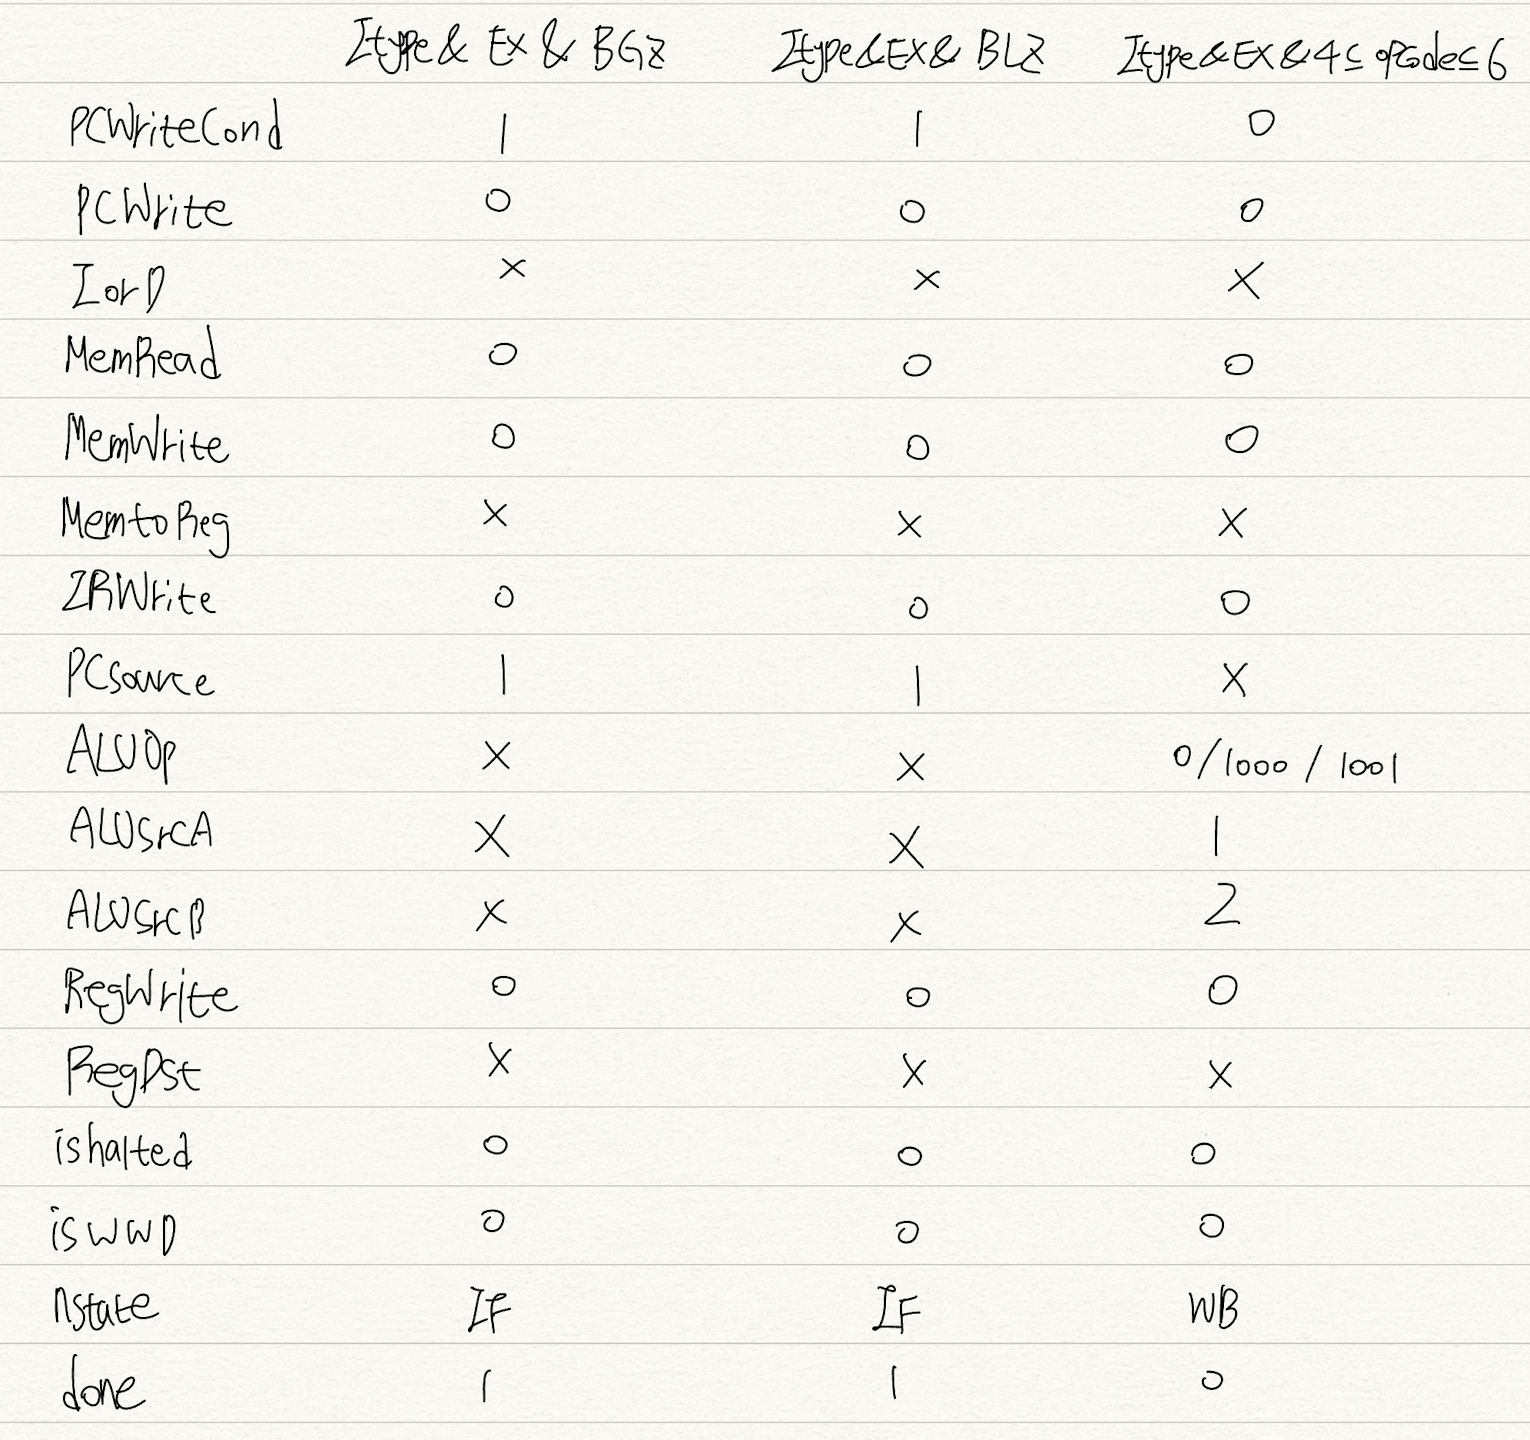 Itype & EX & BGZ Itype & EX & BLZ Itype & EX & 4 ≤ opcode ≤ 6
PCWriteCond 1 1 0
PCWrite 0 0 0
IorD X X X
MemRead 0 0 0
MemWrite 0 0 0
MemtoReg X X X
IRWrite 0 0 0
PCsource 1 1 X
ALUOp X X 0/1000/1001
ALUSrcA X X 1
ALUSrcB X X 2
RegWrite 0 0 0
RegDst X X X
ishalted 0 0 0
isWWD 0 0 0
nstate IF IF WB
done 1 1 0